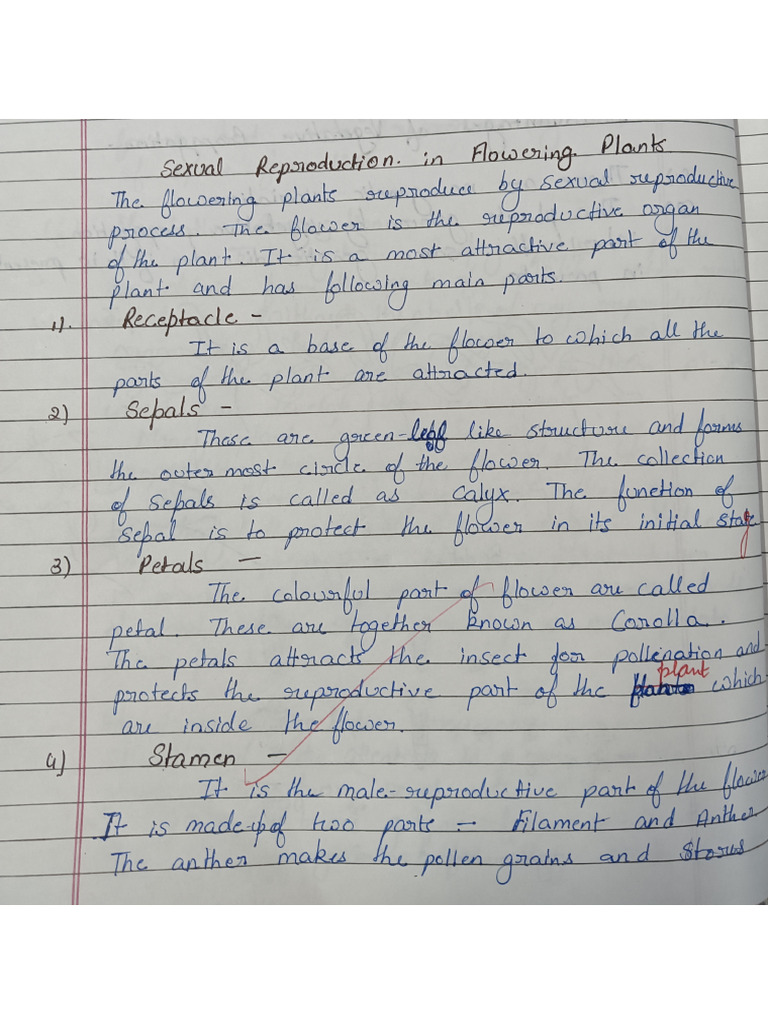 Sexual Reproduction. in Flowering Plants
The flowering plants reproduce by sexual reproductive
process. The flower is the reproductive organ
of the plant. It is a most attractive part of the
plant and has following main parts.
1). Receptacle -
It is a base of the flower to which all the
parts of the plant are attracted.
2) Sepals -
These are green-leaf like structure and forms
the outer most circle of the flower. The collection
of sepals is called as calyx. The function of
sepal is to protect the flower in its initial stage
3) Petals -
The colourful part of flower are called
petal. These are together known as Corolla.
The petals attracts the insect for pollenation and
plant
protects the reproductive part of the which
are inside the flower.
4) Stamen -
It is the male-reproductive part of the flower
It is made-up of two parts - Filament and Anther
The anther makes the pollen grains and stores